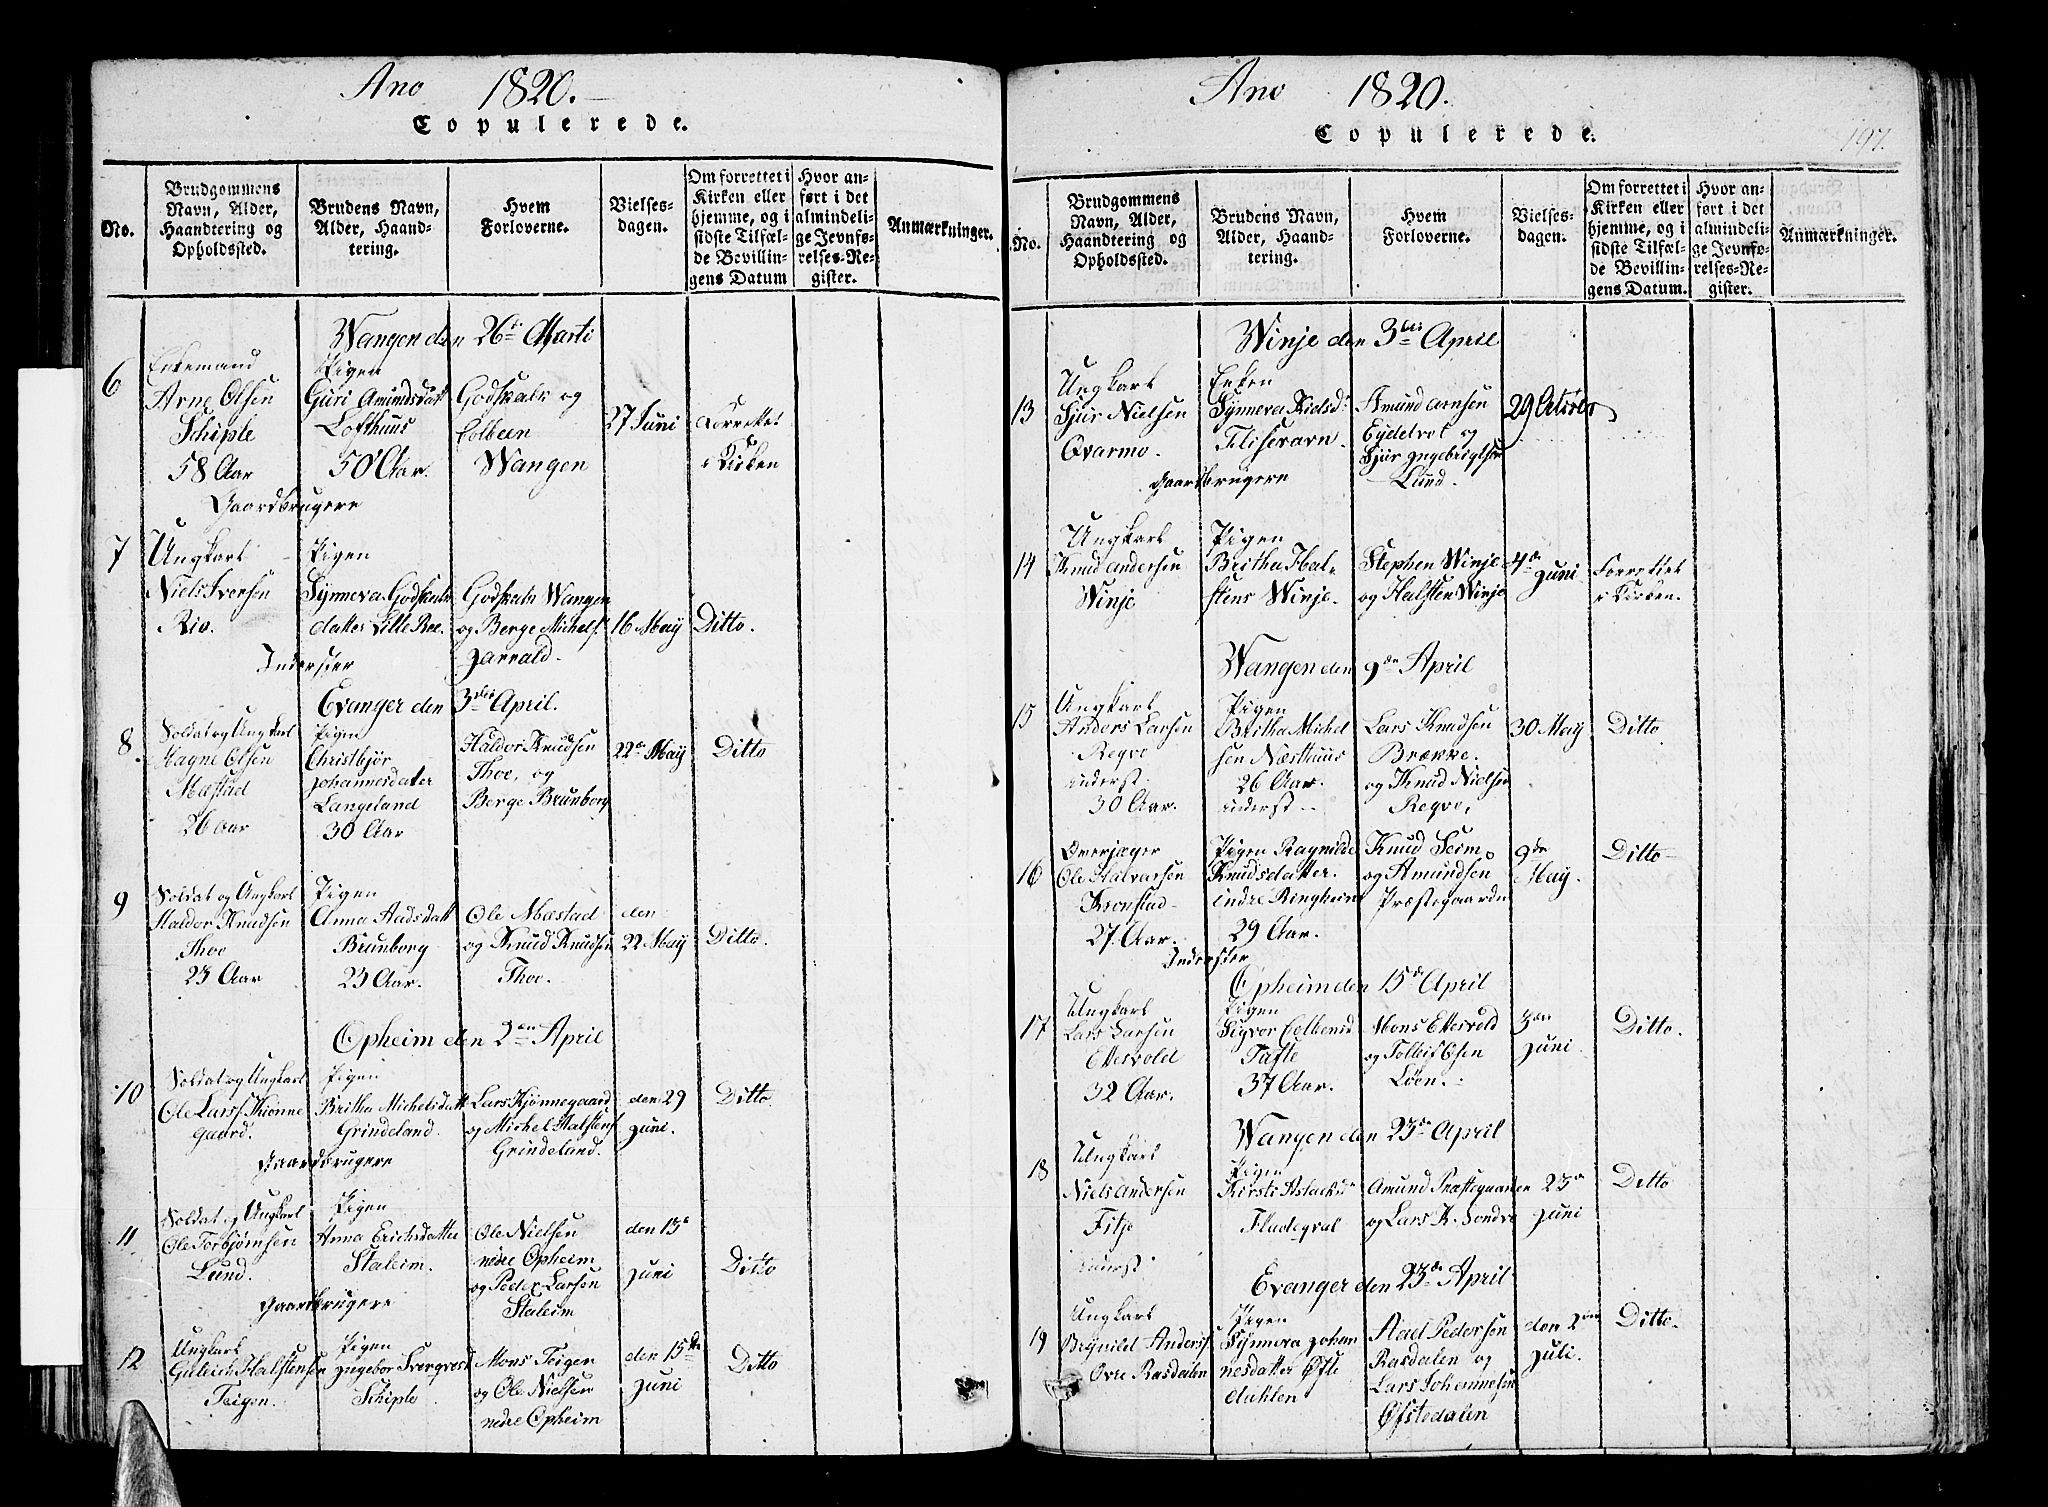 Ano 1820.
Copulerede.
No.
Brudgommens
Navn, Alder,
Haandtering og
Opholdssted.
Brudens Navn,
Alder, Haand-
tering.
Hvem
Forloverne.
Vielses-
dagen.
Om forrettet i
Kirken eller
hjemme, og i
sidste Tilfæl-
de Bevillin-
gens Datum
Hvor an-
ført i det
almindeli-
ge Jevnfø-
relses-Re-
gister.
Anmærkninger.
Wangen den 26de Marti
6
Enkemand
Arne Olsen
Schiple
58 Aar
Pigen
Guri Amundsdatt
Lofthuus
50 Aar.
Gaardbrugere
Godskalk og
Colbeen
Wangen
27 Juni
Forrettet
i Kirken
7
Ungkarl
Niels Iversen
Rio.
Pigen
Synneva Godskalk
datter Lille Ree.
Inderster
Godskalk Wangen
og Berge Michels.
16 May
Ditto.
Evanger den 3die April.
8
Soldat og Ungkarl
Magne Olsen
Mæstad
26 Aar
Pigen
Christbjør
Johannesdater
Langeland
30 Aar
Haldor Knudsen
Thoe, og
Berge Brunborg
22de May
Ditto
9
Soldat og Ungkarl
Haldor Knudsen
Thoe
23 Aar
Pigen
Anna Aadsdatt
Brunborg
23 Aar.
Ole Mæstad
og Knud Knudsen
Thoe.
den
22 May
Ditto.
Opheim den 2den April
10
Soldat og Ungkarl
Ole Lars. Kiønne
gaard.
Pigen
Britha Michelsdatt
Grindeland.
Gaardbrugere
Lars Kjønnegaard
og Michel Halstens
Grindeland.
den 29
Juni.
Ditto.
11
Soldat og Ungkarl
Ole Torbjørnsen
Lund.
Pigen
Anna Erichsdatter
Staleim.
Gaardbrugere
Ole Nielsen
nedre Opheim
og Peder Larsen
Staleim
den 13de
Juni
Ditto
12
Ungkarl
Guleich Halstensen
Teigen.
Pigen
Ingebor
Schiple
Mons Teigen
og Ole Nielsen
nedre Opheim
den 15de
Juni
Ditto
Ano 1820.
Copulerede.
197.
No.
Brudgommens
Navn, Alder,
Haandtering og
Opholdssted.
Brudens Navn,
Alder, Haand-
tering.
Hvem
Forloverne.
Vielses-
dagen.
Om forrettet i
Kirken eller
hjemme, og i
sidste Tilfæl-
de Bevillin-
gens Datum.
Hvor an-
ført i det
almindeli-
ge Jevnfø-
relses-Re-
gister.
Anmærkninger.
Winje den 3die April
13
Ungkarl
Sjur Nielsen
Qvarmo.
Enken
Synneva Nielsd.
Gaardbrugere
Amund Arnsen
Eydetvot og
Sjur Ingebrigtsen
Lund.
29 Octobr
14
Ungkarl
Knud Andersen
Winje
Pigen
Britha Hal-
stens Winje.
Stephen Winje
og Halsten Winje
4de
Juni
Forrettet
i Kirken.
Wangen den 9de April
15
Ungkarl
Anders Larsen
Reqve
inderst
30 Aar.
Pigen
Britha Michel
sen Næsthuus
26 Aar.
inderst
Lars Knudsen
Brække.
og Knud Nielsen
Reqve,
30 May
Ditto
16
Overjæger
Ole Halvarsen
Kronstad
27 Aar.
Pigen Ragnilde
Knudsdatter.
indre Ringheim
29 Aar.
Inderster
Knud Seim
og Amundsen
Præstegaarden
9de
May.
Ditto
Opheim den 15de April
17
Ungkarl
Lars Larsen
Ettesvold
32 Aar.
Pigen
Sigvor Colbensd
Tafte
37 Aar.
Mons Ettesvold
og Tolleif Olsen
Løen.
3den
Juni
Ditto.
Wangen den 23de April
18
Ungkarl
Niels Andersen
Fitje
Inderst
Pigen
Kirsti Aslacksd
Fladeqval
Amund Præstegaarden
og Lars K. Sondve
23de
Juni
Ditto
Evanger den 23de April
19
Ungkarl
Brynild Anders.
Øvre Rasdalen
Pigen
Synneva Johan
nesdatter Øfste
dahlen
Aad Pedersen
Rasdalen og
Lars Johannesen
Øfstedalen
den 2den
Juli.
Ditto.